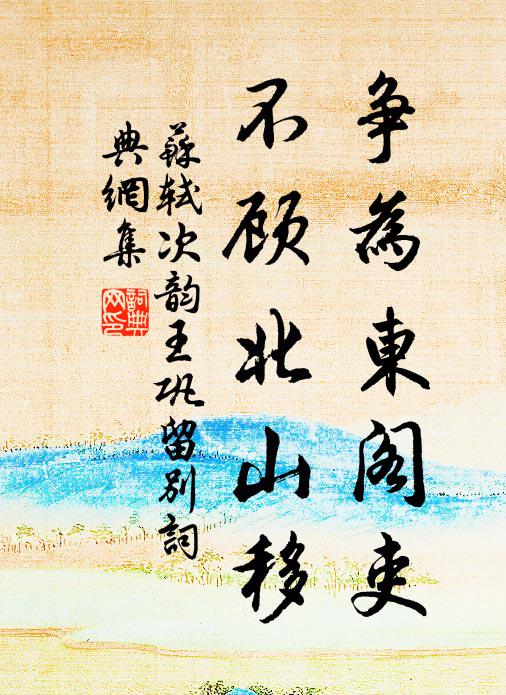 争為東閣吏
不顾北山移
蘇軾次韵王巩留別詞
典網集
詞典
网印